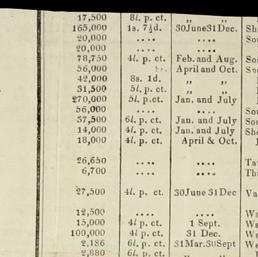 17,500 8l. p. ct. „ „
165,000 1s. 7½d. 30June31Dec. Sh
20,000 .... .... So
20,000 .... ....
78,750 4l. p. ct. Feb. and Aug. So
56,000 April and Oct. S
42,000 8s. 1d. „ „
31,500 5l. p. ct. „ „
270,000 5l. p.ct. Jan. and July
56,000 .... .... So
37,500 6l. p. ct. Jan. and July So
14,000 4l. p. ct. Jan. and July Sh
18,000 4l. p. ct. April & Oct.
26,650 .... .... Ta
6,700 .... .... Th
27,500 4l. p. ct. 30June 31Dec Va
12,500 .... .... Wi
15,000 4l. p. ct. 1 Sept. We
100,000 4l. p. ct. 31 Dec. We
2,186 6l. p. ct. 31Mar.30Sept We
2,880 6l. p. ct.